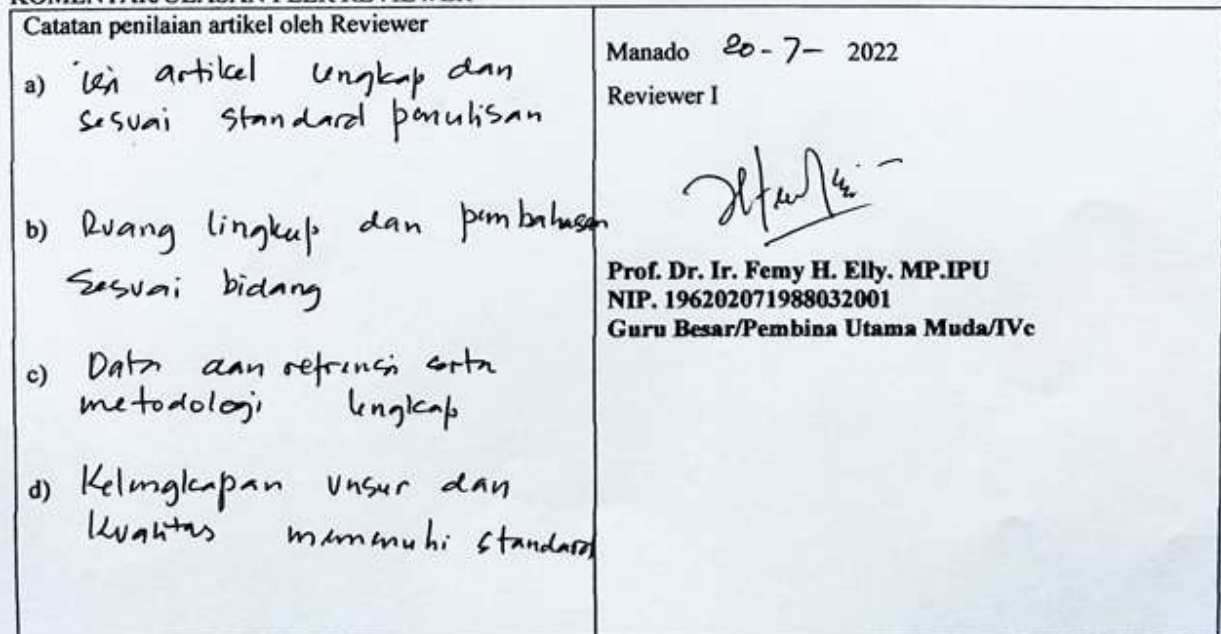 KOMENTAR/ULASAN PEER REVIEWER
Catatan penilaian artikel oleh Reviewer
a) isi artikel lengkap dan
sesuai standard penulisan
b) Ruang lingkup dan pembahasan
Sesuai bidang
c) Data dan refrensi serta
metodologi lengkap
d) Kelengkapan unsur dan
kualitas memenuhi standard
Manado 20-7- 2022
Reviewer I
Prof. Dr. Ir. Femy H. Elly. MP.IPU
NIP. 196202071988032001
Guru Besar/Pembina Utama Muda/IVc